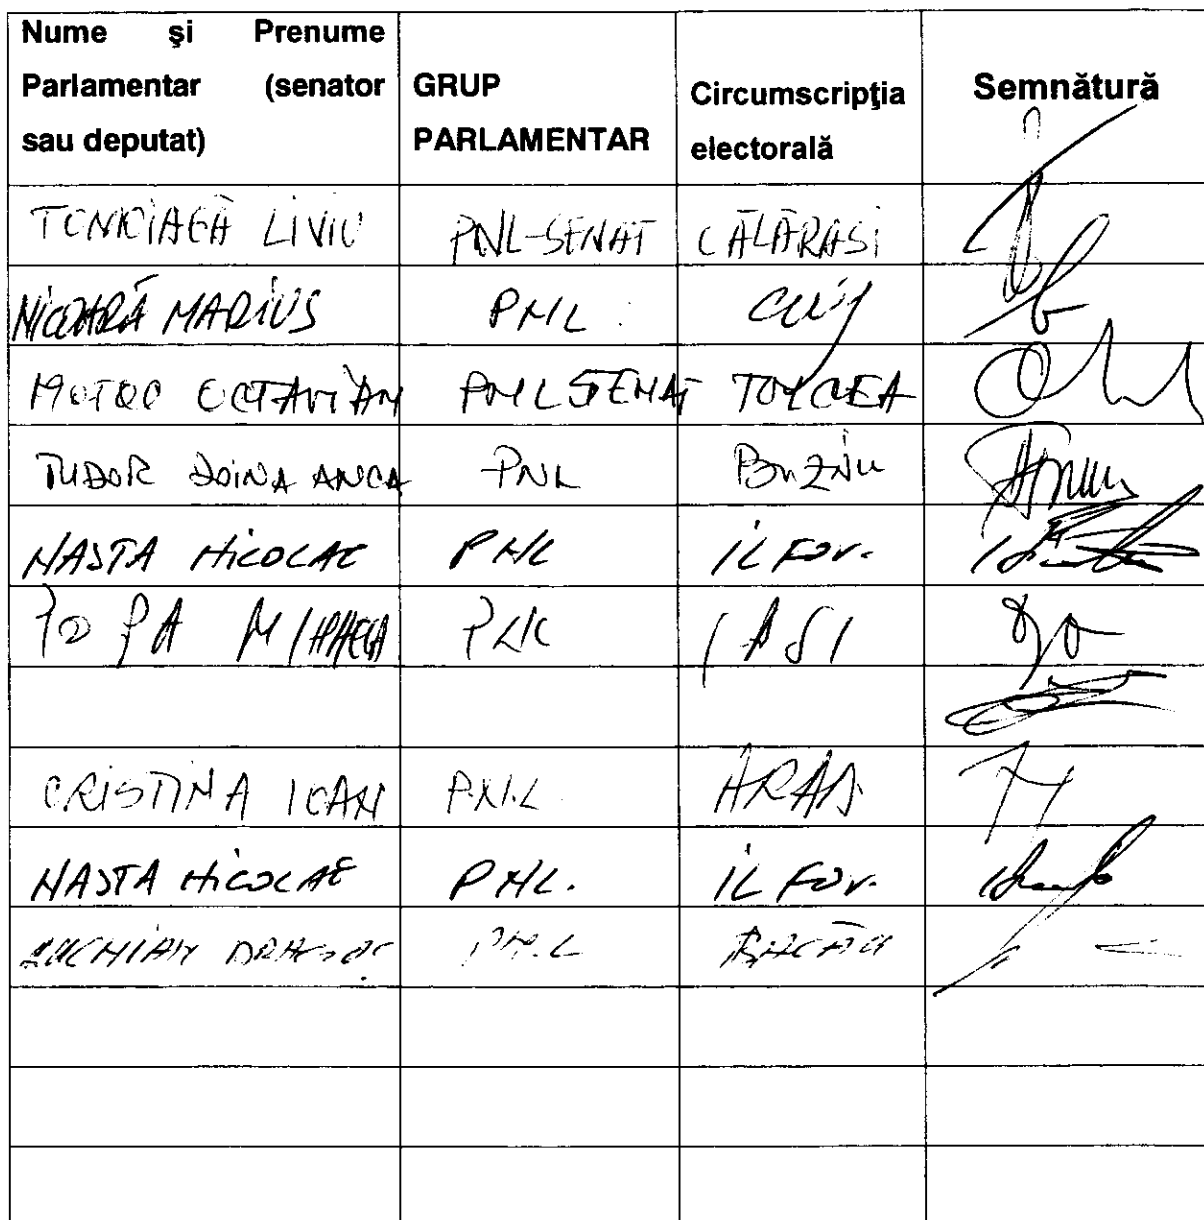 Nume şi Prenume
Parlamentar (senator
sau deputat)
GRUP
PARLAMENTAR
Circumscripţia
electorală
Semnătură
LIVIU PNL-SENAT CĂLĂRASI
NICOARĂ MARIUS PNL CLUJ
MOTOC OCTAVIAN PNL SENAT
TUDOR DOINA ANCA PNL Buzău
NASTA NICOLAE PNL ILFOV.
POPA MIHAELA PNL IASI
CRISTINA IOAN PNL ARAD
NASTA NICOLAE PNL. ILFOV.
LUCHIAN DRAGOȘ PNL BACĂU